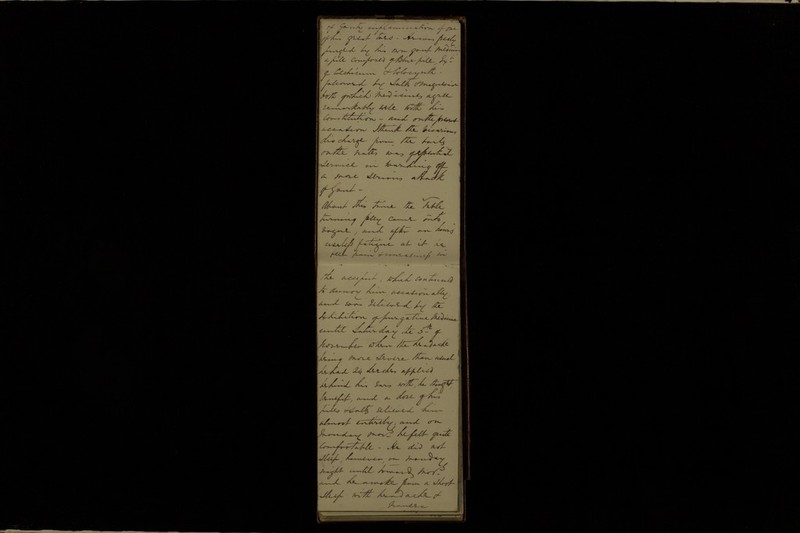 of Gouty inflammation of one
of his great toes. He was freely
purged by his own
a pill composed of Blue pill, Ex.
of Colchicum & Colocynth.
followed by Salts & magnesia
both of which medicines agree
remarkably well with his
Constitution - and on the present
occasion I think the
discharge from the bowels
on the was of essential
Service in warding off
a more Serious attack
of Gout -
About this time the Table
turning folly came into
vogue, and after an hour's
useless fatigue at it he
felt pain & in
the occiput, which continued
to annoy him occasionally
and was relieved by the
Exhibition of purgative Medicine
until Saturday the 5th of
November when the headache
being more Severe than usual
he had 24 Leeches applied
behind his Ears with, he thought
benefit, and a dose of his
pills & salts relieved him
almost entirely, and on
Monday morng he felt quite
Comfortable - He did not
Sleep however on Monday
night until towards morng
and he awoke from a Short
Sleep with headache &